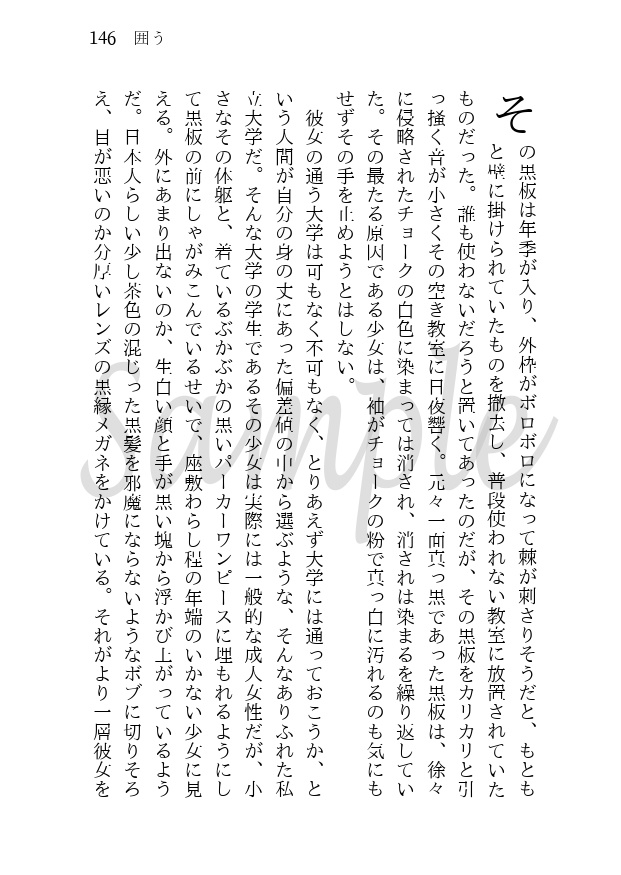 146 囲う
その黒板は年季が入り、外枠がボロボロになって棘が刺さりそうだと、もとも
と壁に掛けられていたものを撤去し、普段使われない教室に放置されていた
ものだった。誰も使わないだろうと置いてあったのだが、その黒板をカリカリと引
っ掻く音が小さくその空き教室に日夜響く。元々一面真っ黒であった黒板は、徐々
に侵略されたチョークの白色に染まっては消され、消されは染まるを繰り返してい
た。その最たる原因である少女は、袖がチョークの粉で真っ白に汚れるのも気にも
せずその手を止めようとはしない。
彼女の通う大学は可もなく不可もなく、とりあえず大学には通っておこうか、と
いう人間が自分の身の丈にあった偏差値の中から選ぶような、そんなありふれた私
立大学だ。そんな大学の学生であるその少女は実際には一般的な成人女性だが、小
さなその体躯と、着ているぶかぶかの黒いパーカーワンピースに埋もれるようにし
て黒板の前にしゃがみこんでいるせいで、座敷わらし程の年端のいかない少女に見
える。外にあまり出ないのか、生白い顔と手が黒い塊から浮かび上がっているよう
だ。日本人らしい少し茶色の混じった黒髪を邪魔にならないようなボブに切りそろ
え、目が悪いのか分厚いレンズの黒縁メガネをかけている。それがより一層彼女を
Sample